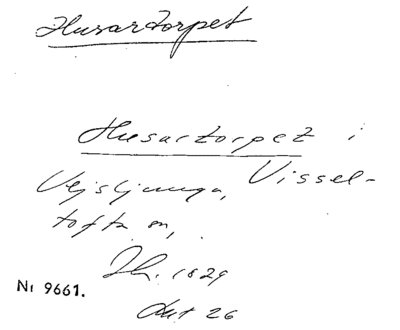 Husartorpet
Husartorpet i
Vejsljunga, Vissel-
tofta sn,
Jh. 1829
Nr 9661.
Akt 26